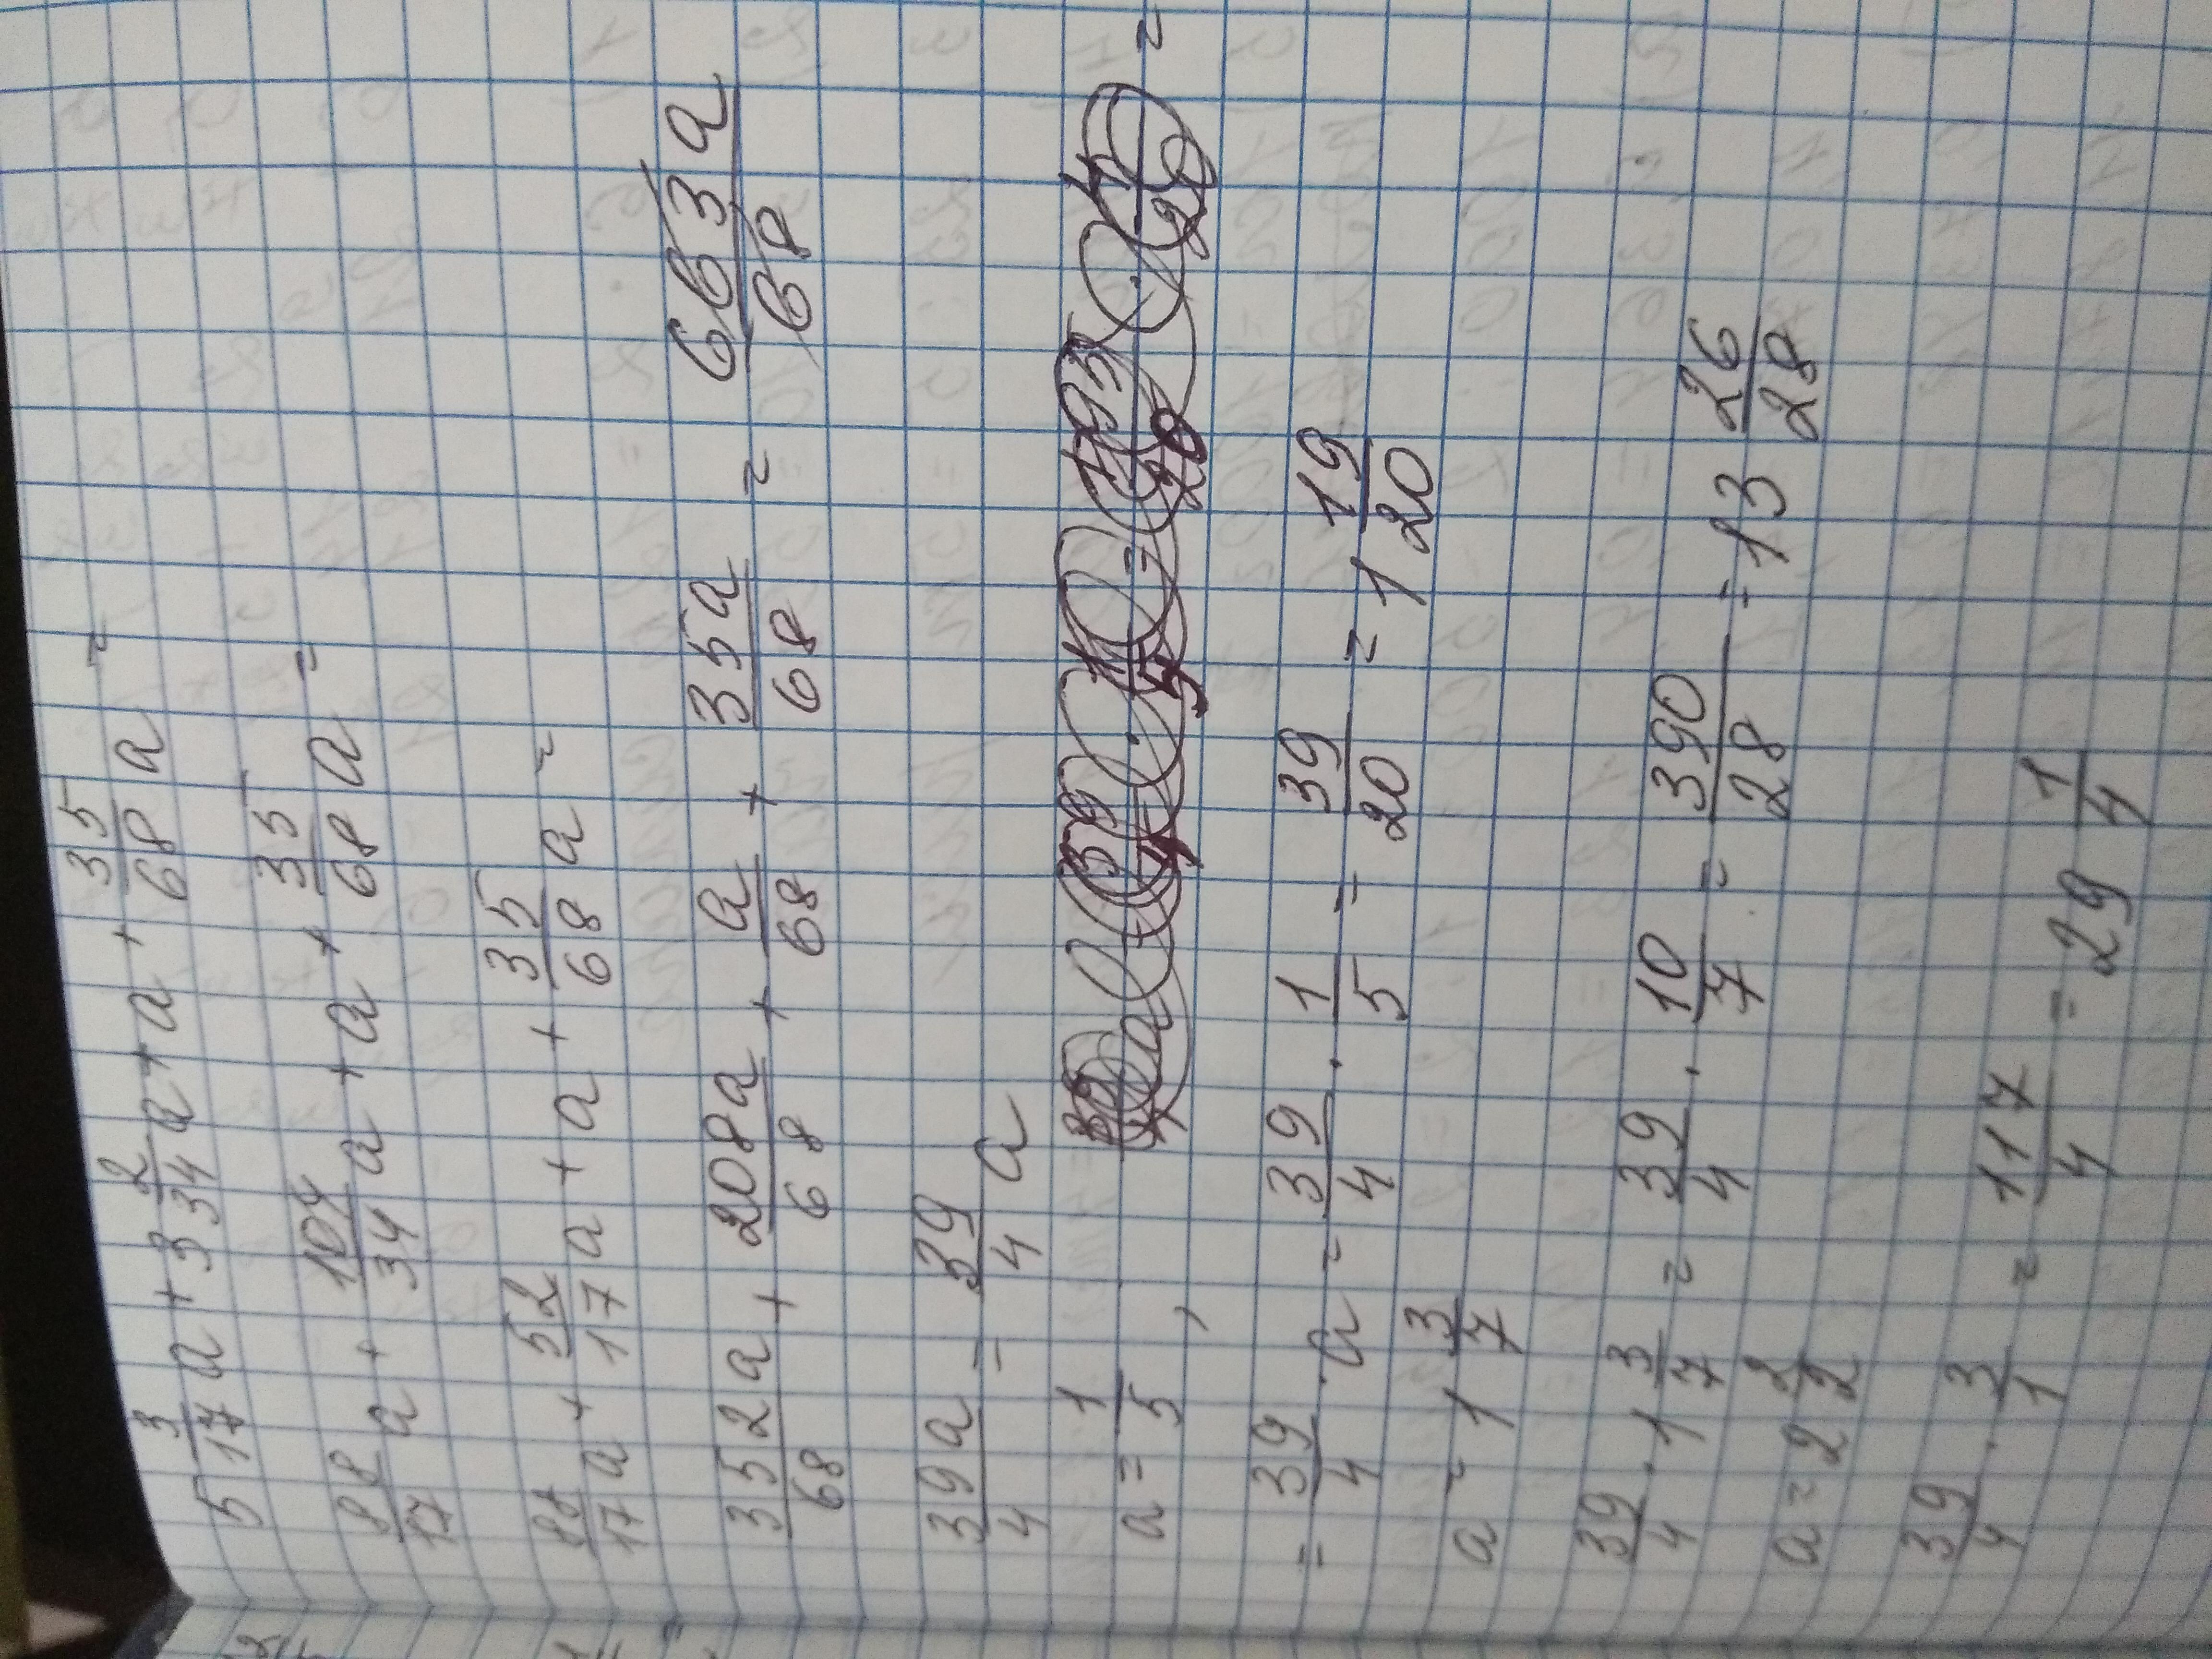 5 3/17 a + 3 2/34 a + a + 35/68 a =
88/17 a + 104/34 a + a + 35/68 a =
88/17 a + 52/17 a + a + 35/68 a =
352a/68 + 208a/68 + a/68 + 35a/68 = 663a/68
39a/4 = 39/4 a
a = 1/5 ,
= 39/4 · a = 39/4 · 1/5 = 39/20 = 1 19/20
a = 1 3/7
39/4 · 1 3/7 = 39/4 · 10/7 = 390/28 = 13 26/28
a = 2 2/2
39/4 · 3/1 = 117/4 = 29 1/4